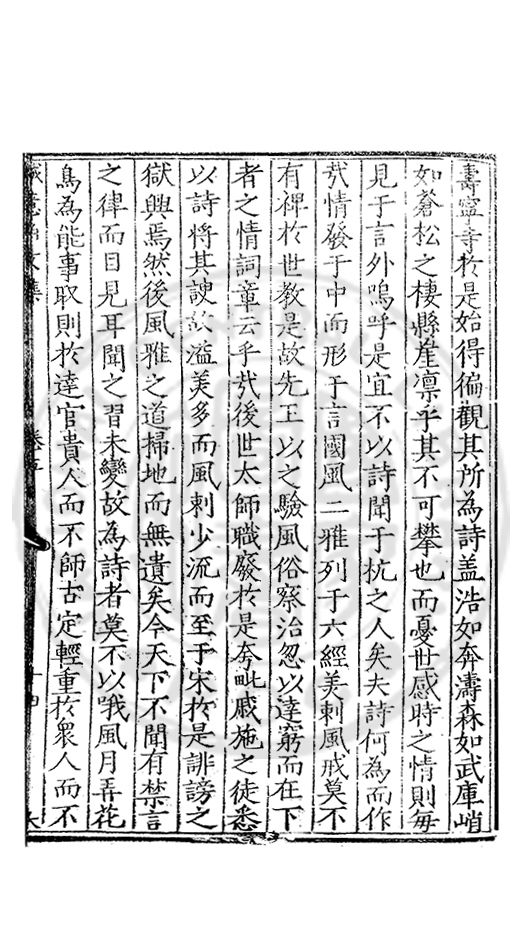 壽寧寺於是始得徧觀其所為詩盖浩如奔濤森如武庫峭
如蒼松之棲縣崖凛乎其不可攀也而憂世感時之情則每
見于言外嗚呼是宜不以詩聞于杭之人矣夫詩何為而作
㦲情發于中而形于言國風二雅列于六經美刺風戒莫不
有裨於世教是故先王以之驗風俗察治忽以達窮而在下
者之情詞章云乎㦲後世太師職廢於是夸毗戚施之徒悉
以詩將其諛故溢美多而風刺少流而至于宋於是誹謗之
獄興焉然後風雅之道掃地而無遺矣今天下不聞有禁言
之律而目見耳聞之習未變故為詩者莫不以哦風月弄花
鳥為能事取則於達官貴人而不師古定輕重於衆人而不